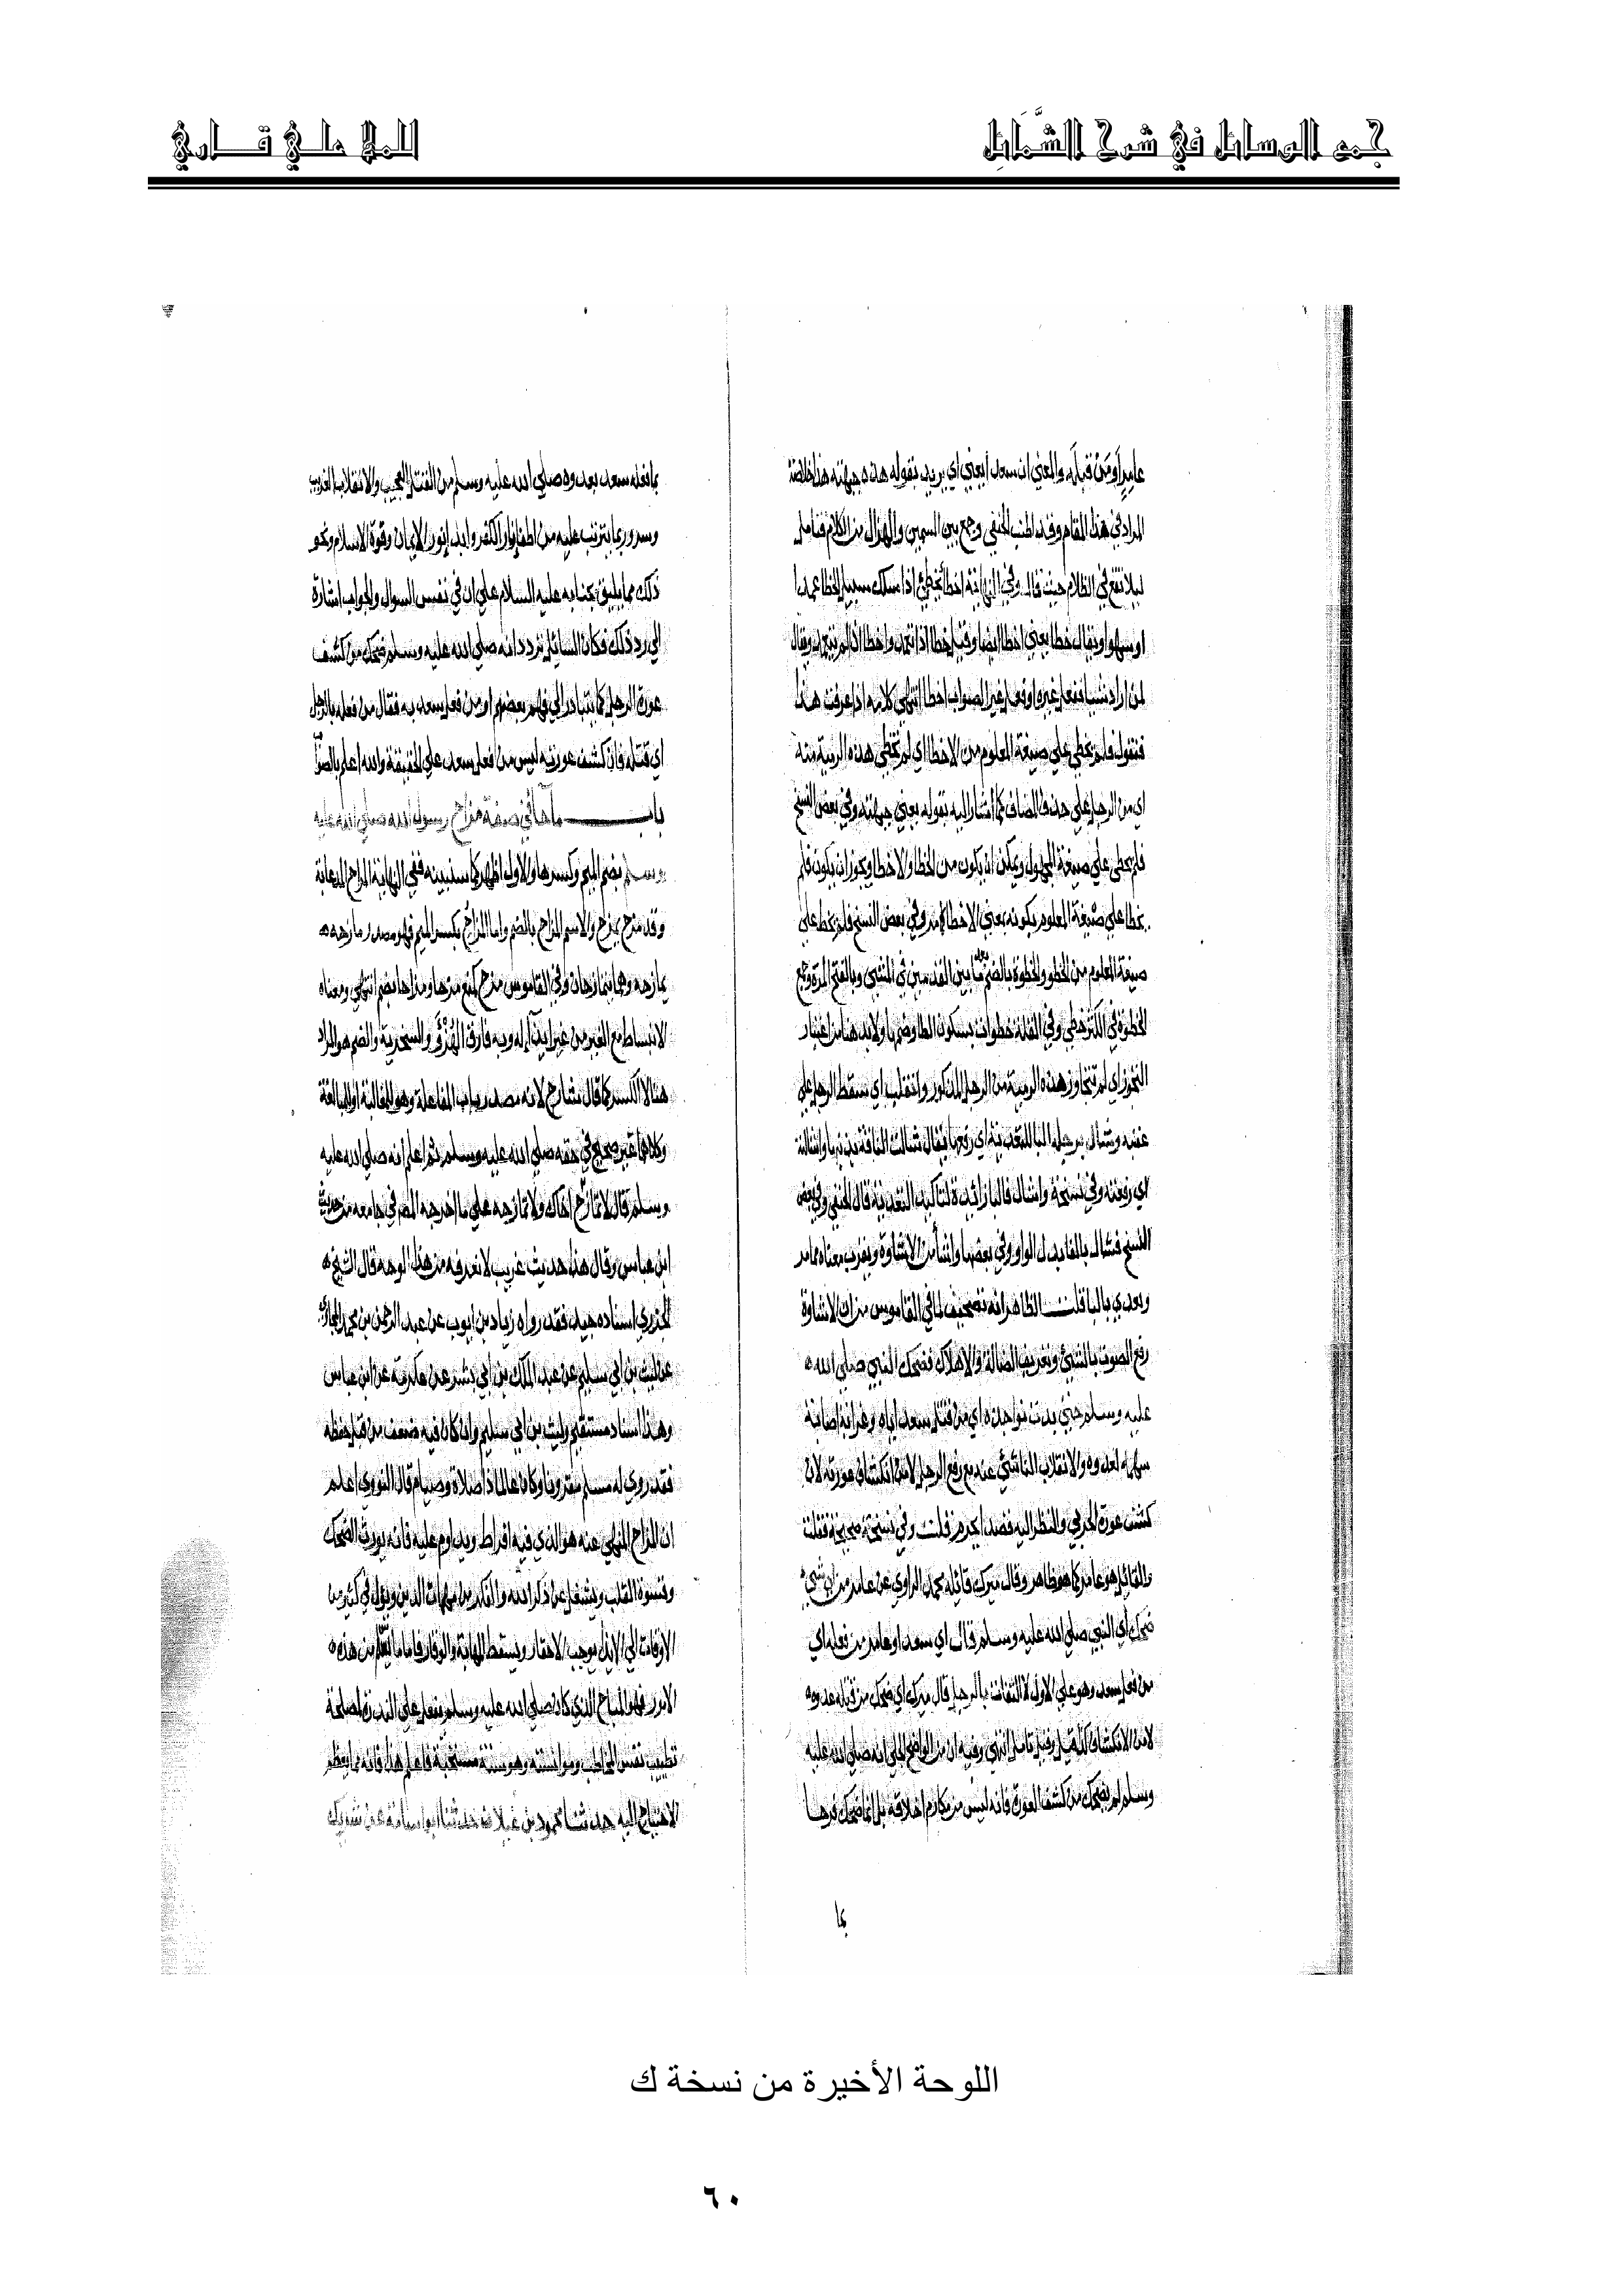 جمع الوسائل في شرح الشَّمَائِل
للملا علي قاري
عامرا ومن قبله والمعني ان سعدا يعني اي يريد بقوله هذه جبهته هذا خلاصة
المراد في هذا المقام وقد اطنب الحنفي وجمع بين السمين والهزال من الكلام فتامل
ليلا تقع في الظلام حيث قال وفي النهاية اخطأ يخطئ اذا سلك سبيل الخطا عمدا
او سهوا ويقال خطا يعني اخطا ايضا وقيل خطا اذا تعمد واخطا اذا لم يتعمد ويقال
لمن اراد شيا ففعل غيره او فعل غير الصواب اخطا انتهي كلامه اذا عرفت هذا
فنقول فلم تخطي علي صيغة المعلوم من الاخطا اي لم تخطي هذه الرمية منه
اي من الرجل علي حذف المضاف كما أشار اليه بقوله يعني جبهته وفي بعض النسخ
فلم يخطي علي صيغة المجهول ويمكن ان يكون من الخطا والاخطا ويجوز ان يكون فلم
يخطا علي صيغة المعلوم بكونه بمعني الاخطا كما مر وفي بعض النسخ فلم تخط علي
صيغة المعلوم من الخطو والخطوة بالضم بعد ما بين القدمين في المشي وبالفتح المرة وجمع
الخطوة في الكثر خطي وفي القلة خطوات بسكون الطا وضمها ولا بد هنا من اعتبار
التجوز اي لم تتجاوز هذه الرمية من الرجل المذكور وانقلب اي سقط الرجل علي
عقبه وشال برجله البا للتعدية اي رفعها يقال شالت الناقة بذنبها واشالته
اي رفعته وفي نسخة واشال فالبا زائدة لتاكيد التعدية قال الحنفي وفي بعض
النسخ فشال بالفا بدل الواو وفي بعضها واشأ من الاشاوة ويقرب معناه مما مر
ويعدي بالبا قلت الظاهر انه تصحيف لما في القاموس من ان الاشاوة
رفع الصوت بالشيئ وتعريف الضالة والاهلاك فضحك النبي صلي الله
عليه وسلم حتي بدت نواجذه اي من قتل سعد اياه وغرابة اصابة
سهمه لعدوه والانقلاب الناشئ عنه مع رفع الرجل لا من انكشاف عورته لان
كشف عورة الحربي والنظر اليه قصدا يحرم قلت وفي نسخة صحيحة فقلت
والقائل هو عامر كما هو ظاهر وقال ميرك قائله محمد الراوي عن عامر من اي شيئ
ضحك اي النبي صلي الله عليه وسلم قال اي سعد او عامر من فعله اي
من فعل سعد وهو علي الاول التفات بالرجل قال ميرك اي ضحك من قتله عدوه
لا من الانكشاف كذا قيل وفيه تامل انتهي وفيه ان من الواضح الجلي انه صلي الله عليه
وسلم لم يضحك من كشف العورة فانه ليس من مكارم اخلاقه بل انما ضحك فرحا
بما
بما فعله سعد بعدوه صلي الله عليه وسلم من القتل العجيب والانقلاب الغريب
وسرورا بما يترتب عليه من اطفا نار الكفر وابدا نور الايمان وقوة الاسلام ونحو
ذلك مما يليق بجنابه عليه السلام علي ان في نفس السوال والجواب اشارة
الي رد ذلك فكان السائل تردد انه صلي الله عليه وسلم ضحك من كشف
عورة الرجل كما يتبادر الي فهم بعضهم او من فعل سعد به فقال من فعله بالرجل
اي قتله فان كشف عورته ليس من فعل سعد علي الحقيقة والله اعلم بالصواب
باب ما جا في صفة مزاح رسول الله صلي الله عليه
وسلم بضم الميم وكسرها والاول اظهر كما سنبينه ففي النهاية المزاح الدعابة
وقد مزح يمزح والاسم المزاح بالضم واما المزاح بكسر الميم فهو مصدر مازحه
يمازحه وهما يتمازحان وفي القاموس مزح كمنع مزحا ومزاحا بضم انتهي ومعناه
الانبساط مع الغير من غير ايذاء له وبه فارق الهُزْؤَ والسخرية والضم هو المراد
هنا لا الكسر كما قال شارح لانه مصدر باب المفاعلة وهو للمغالبة او للمبالغة
وكلاهما غير صحيح في حقه صلي الله عليه وسلم ثم اعلم انه صلي الله عليه
وسلم قال لا تمار اخاك ولا تمازحه علي ما اخرجه المص في جامعه من حديث
ابن عباس وقال هذا حديث غريب لا نعرفه من هذا الوجه قال الشيخ
الجزري اسناده جيد فقد رواه زياد بن ايوب عن عبد الرحمن بن محمد المحاربي
عن ليث بن ابي سليم عن عبد الملك بن ابي بشر عن عكرمة عن ابن عباس
وهذا اسناد مستقيم وليث بن ابي سليم وان كان فيه ضعف من قبل حفظه
فقد روي له مسلم مقرونا وكان عالما ذا صلاة وصيام قال النووي اعلم
ان المزاح المنهي عنه هو الذي فيه افراط ويداوم عليه فانه يورث الضحك
وقسوة القلب ويشغل عن ذكر الله والفكر من مهمات الدين ويؤل في كثير من
الاوقات الي الايذا ويوجب الاحقاد ويسقط المهابة والوقار فاما ما يسلم من هذه
الامور فهو المباح الذي كان صلي الله عليه وسلم يفعل علي الندرة لمصلحة
تطييب نفس المخاطب وموانسته وهو سنة مستحبة فاعلم هذا فانه مما يعظم
الاحتياج اليه حدثنا محمود بن غيلان حدثنا ابو اسامة عن شريك
اللوحة الأخيرة من نسخة ك
٦٠